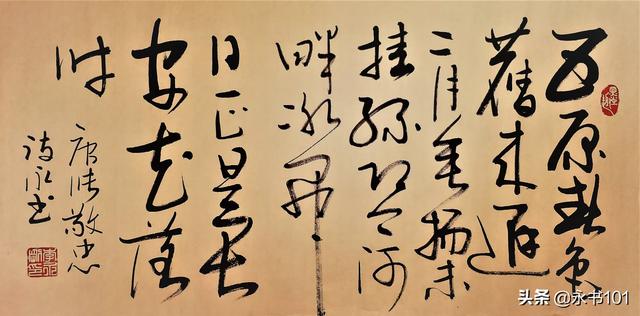 五原春色
舊来遲
二月垂楊未
挂絲即今河
畔冰開
日正是長
安花落
時
唐张敬忠
诗永书
头条 @永书101